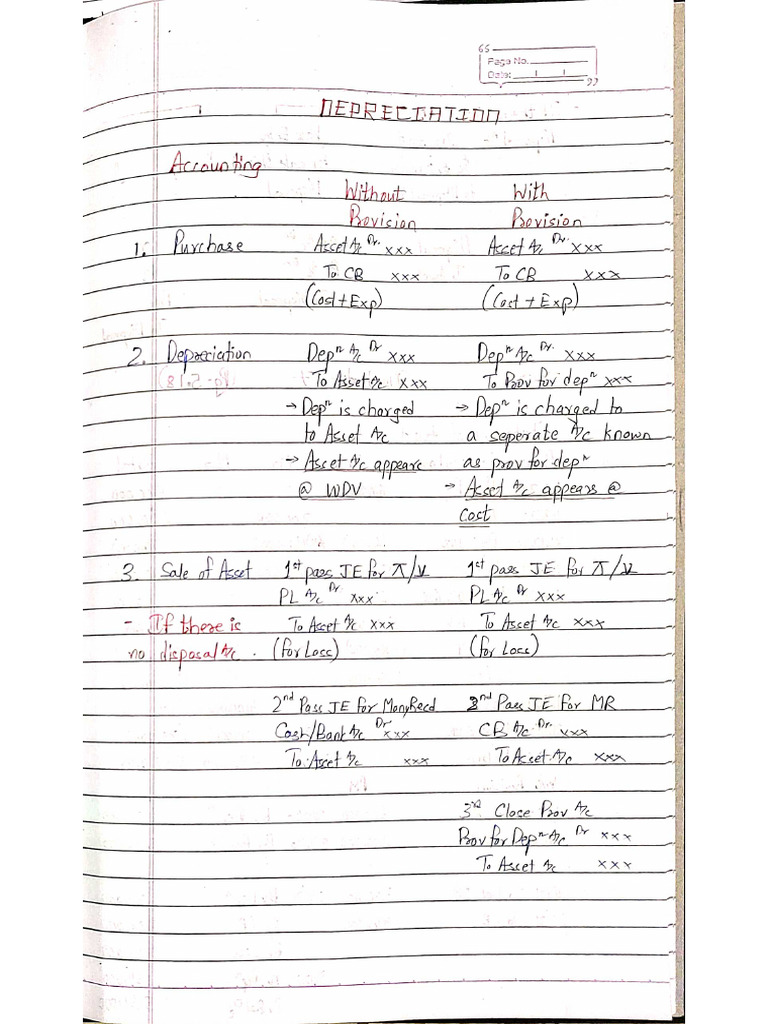 Page No.
Date:
DEPRECIATION
Accounting
Without With
Provision Provision
1. Purchase Asset A/c Dr. xxx Asset A/c Dr. xxx
To CB xxx To CB xxx
(Cost + Exp) (Cost + Exp)
2. Depreciation Depn A/c Dr xxx Depn A/c Dr. xxx
To Asset A/c xxx To Prov for depn xxx
→ Depn is charged → Depn is charged to
to Asset A/c a seperate A/c known
→ Asset A/c appears as prov for depn
@ WDV → Asset A/c appears @
Cost
3. Sale of Asset 1st pass JE for π/L 1st pass JE for π/L
PL A/c Dr xxx PL A/c Dr xxx
- If there is To Asset A/c xxx To Asset A/c xxx
no disposal A/c. (for Loss) (for Loss)
2nd Pass JE for MonyRecd 2nd Pass JE for MR
Cash/Bank A/c Dr xxx CB A/c Dr. xxx
To Asset A/c xxx To Asset A/c xxx
3rd Close Prov A/c
Prov for Depn A/c Dr xxx
To Asset A/c xxx